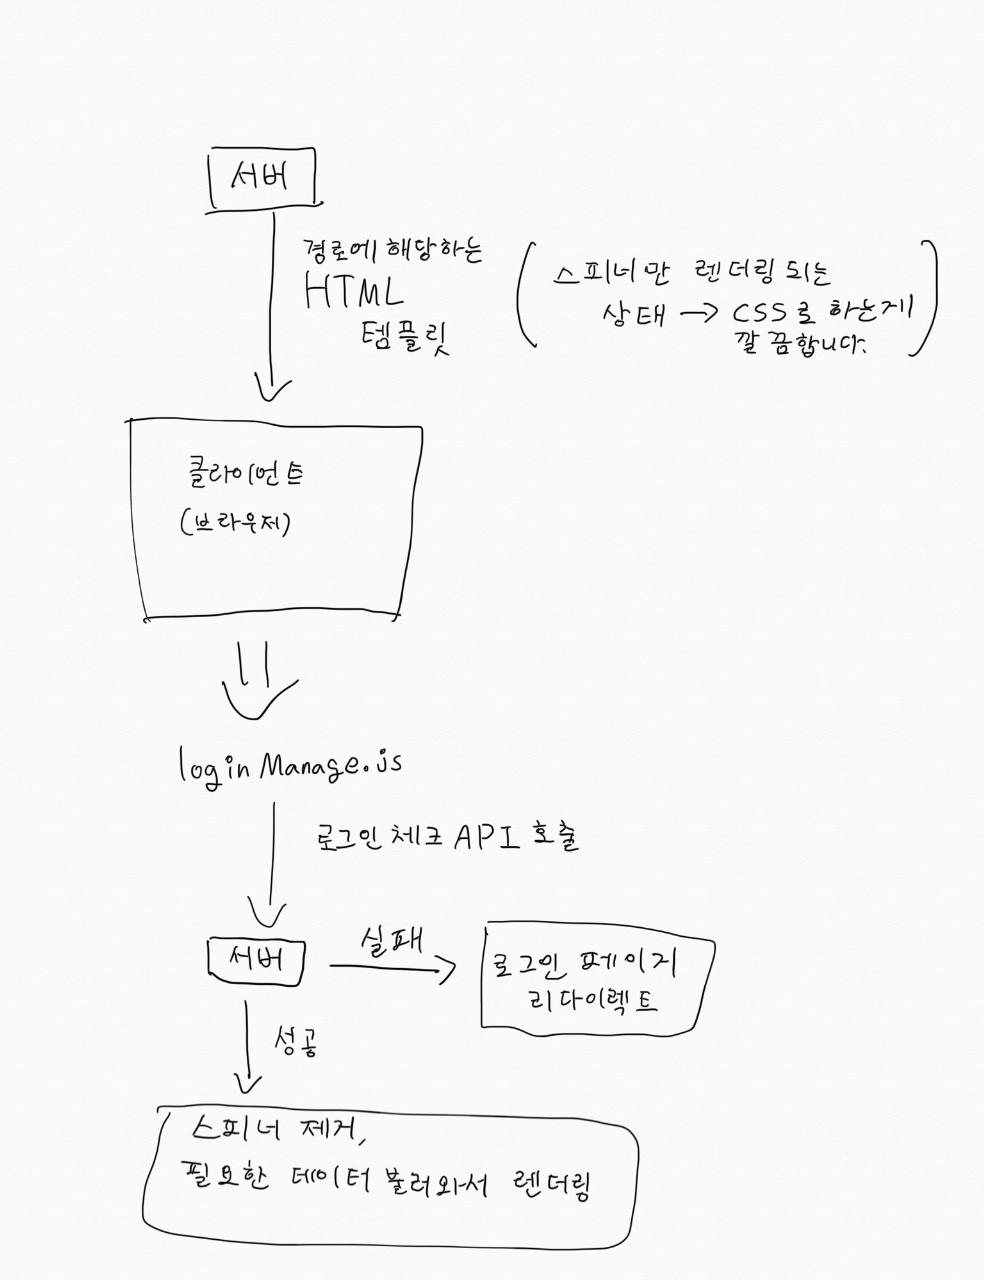 서버
경로에 해당하는
HTML
템플릿
스피너만 렌더링 되는
상태 → CSS로 하는게
깔끔합니다.
클라이언트
(브라우저)
loginManage.js
로그인 체크 API 호출
서버
실패
로그인 페이지
리다이렉트
성공
스피너 제거,
필요한 데이터 불러와서 렌더링